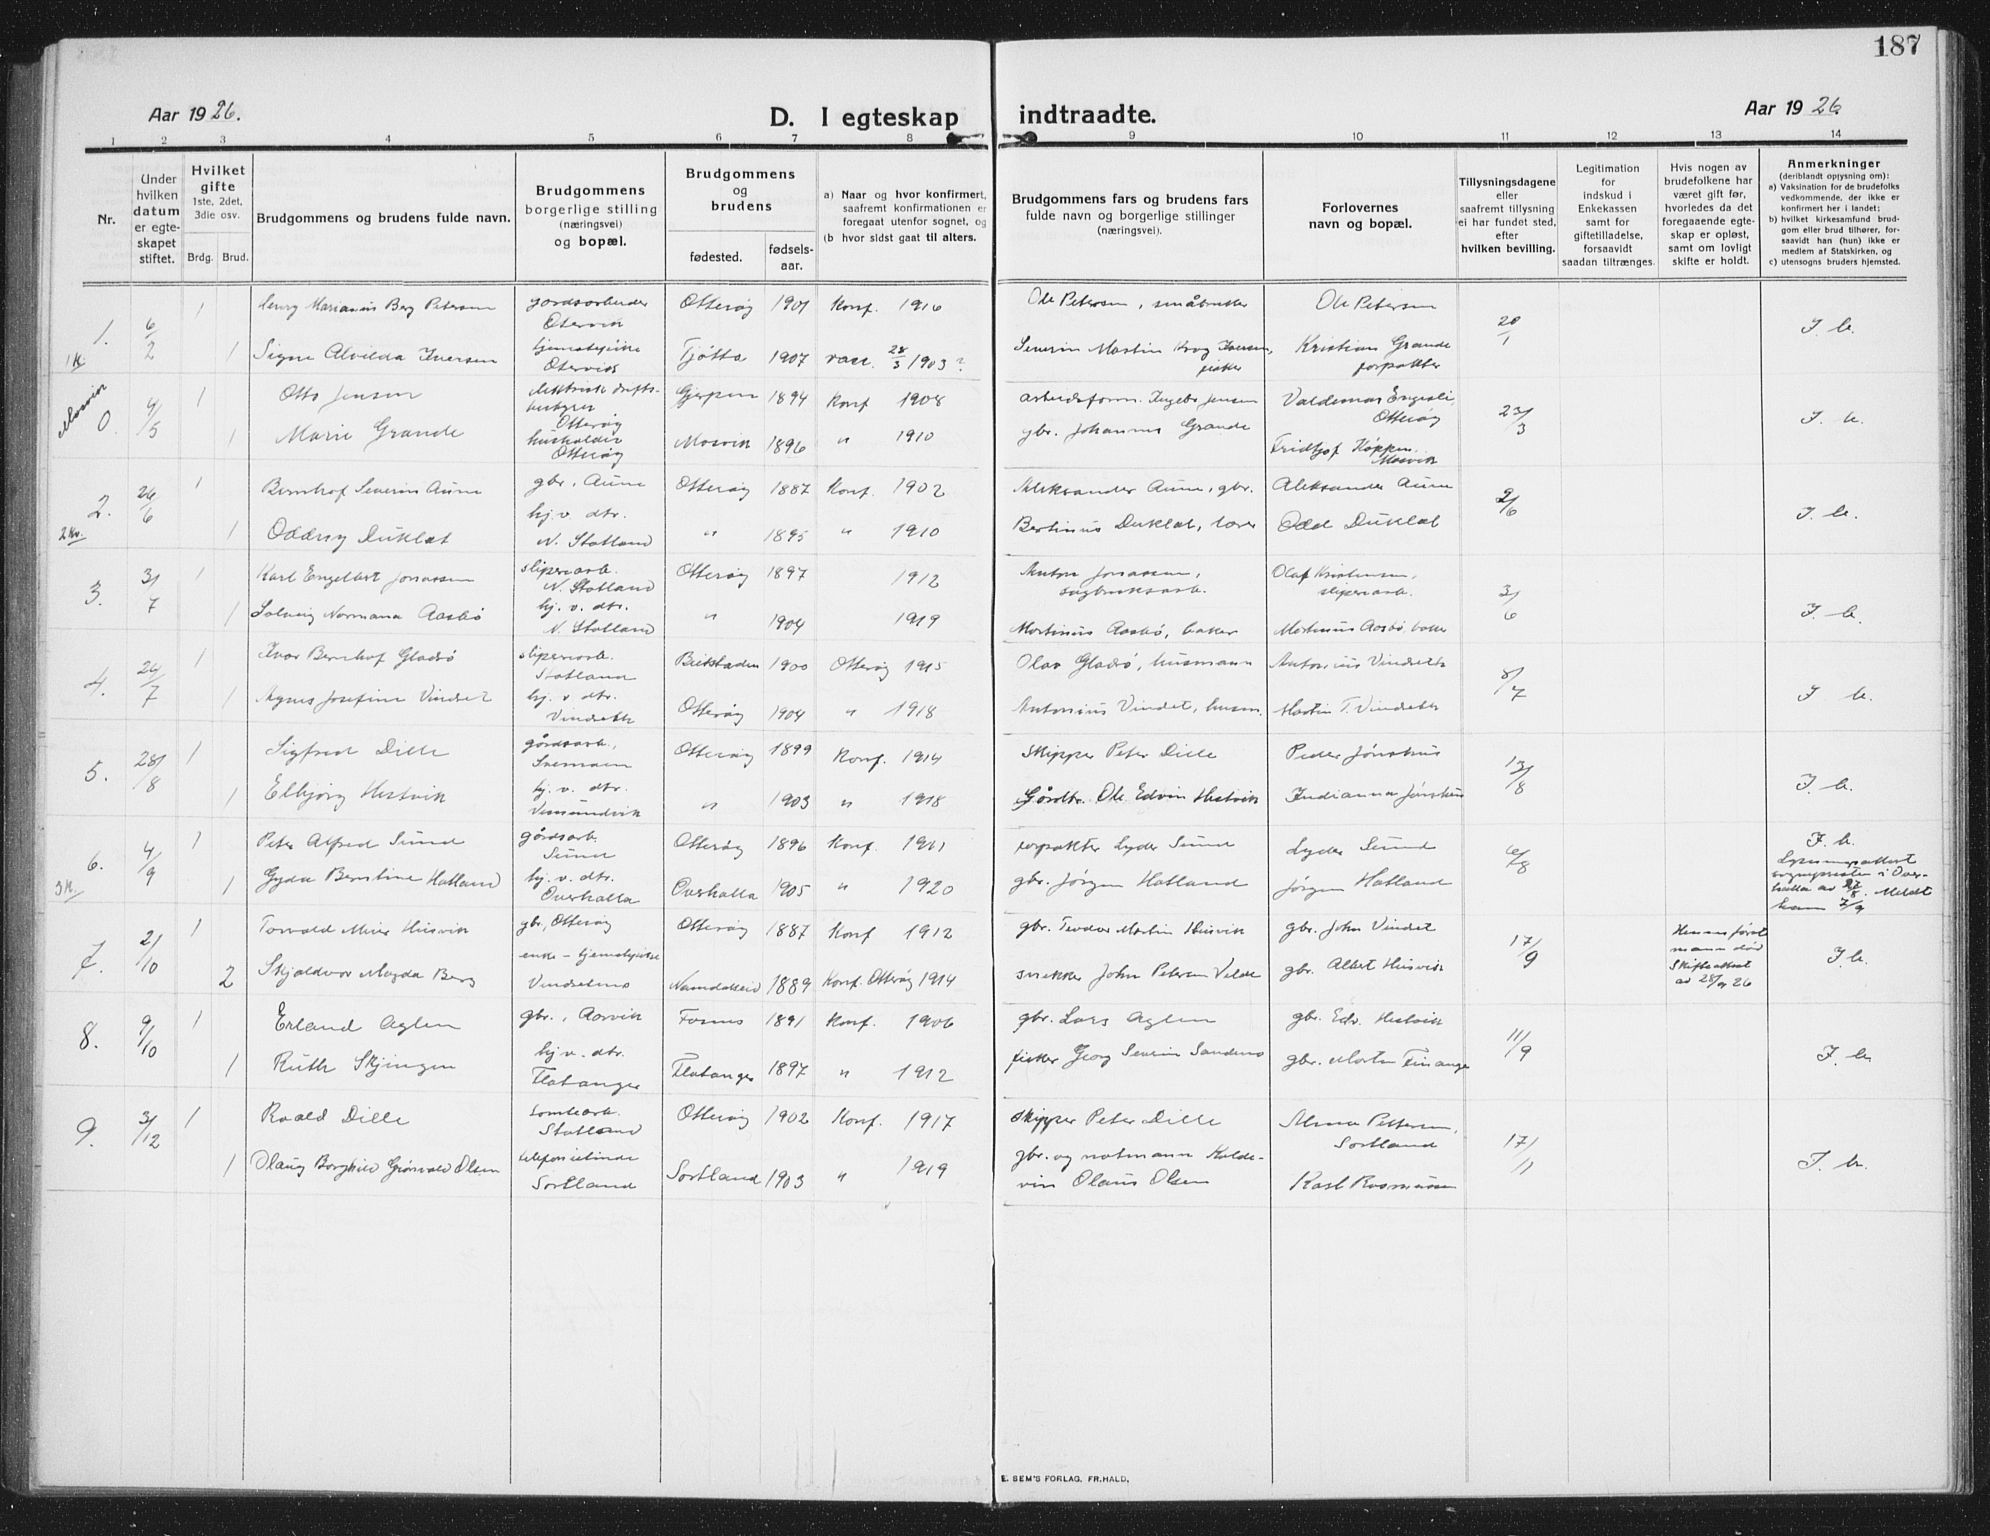 187
Aar 1926.
D. I egteskap indtraadte.
Aar 1926
1 2 3 4 5 6 7 8 9 10 11 12 13 14
Nr.
Under hvilken datum er egteskapet stiftet.
Hvilket gifte
1ste, 2det, 3die osv.
Brdg. Brud.
Brudgommens og brudens fulde navn.
Brudgommens borgerlige stilling (næringsvei) og bopæl.
Brudgommens og brudens
fødested.
fødsels-aar.
a) Naar og hvor konfirmert, saafremt konfirmationen er foregaat utenfor sognet, og
(b hvor sidst gaat til alters.
Brudgommens fars og brudens fars fulde navn og borgerlige stillinger (næringsvei).
Forlovernes navn og bopæl.
Tillysningsdagene eller saafremt tillysning ei har fundet sted, efter hvilken bevilling.
Legitimation for indskud i Enkekassen samt for giftetilladelse, forsaavidt saadan tiltrænges.
Hvis nogen av brudefolkene har været gift før, hvorledes da det foregaaende egteskap er opløst, samt om lovligt skifte er holdt.
Anmerkninger (deriblandt opjysning om):
a) Vaksination for de brudefolks vedkommende, der ikke er konfirmert her i landet;
b) hvilket kirkesamfund brudgom eller brud tilhører, forsaavidt han (hun) ikke er medlem av Statskirken, og
c) utensogns bruders hjemsted.
1. 6/2 1 Marianus Berg Petersen gårdsarbeider Otterøy 1901 Konf. 1916 Ole Petersen, småbruker Ole Petersen 20/1 J. b.
1 Signe Alvilda Iversen Tjøtta 1907 vacc. 28/3 1903? Severin Martin Krog Iversen, fisker Kristian Grande forpakter
Mosvik 0. 4/5 1 Otto Jensen elektrisk drifts-bestyrer Otterøy Gjerpen 1894 Konf 1908 arbeidsform. Ingebr. Jensen Valdemar Engesli, Otterøy 23/3 J. b.
1 Marie Grande husholder Otterøy Mosvik 1896 " 1910 gbr. Johannes Grande Fridtjof Køppen, Mosvik
2. 26/6 1 Bernhof Severin Aune gbr., Aune Otterøy 1887 Konf. 1902 Aleksander Aune, gbr. Aleksander Aune 9/6 J. b.
1 Oddny Duklæt hj.v. dtr. N. Statland " 1895 " 1910 Bertinius Duklæt, lærer Odd Duklæt
3. 3/7 1 Karl Engelbert Jonassen sliperiarb. N. Statland Otterøy 1897 1912 Anton Jonassen, sagbruksarb. Olaf Kristensen, sliperiarb. 3/6 J. b.
1 Solveig Normana Aasbø hj. v. dtr. N. Statland " 1904 1919 Martinius Aasbø, baker Martinius Aasbø, baker
4. 26/7 1 Ivar Bernhof Gladsø sliperiarb. Statland Beitstaden 1900 Otterøy 1915 Olav Gladsø, husmann Antonius Vindseth 8/7 J. b.
1 Agnes Josefine Vindset hj. v. dtr. Vindseth Otterøy 1904 " 1918 Antonius Vindset, husm. Martin T. Vindseth
5. 28/8 1 Sigfred Dille gårdsarb., Otterøy 1899 Konf. 1914 Skipper Peter Dille Peder Jønshus 13/8 J. b.
1 Elbjørg Hestvik hj. v. dtr. " 1903 " 1918 Gårdbr. Ole Edvin Hestvik Indianna Jønshus
6. 4/9 1 Peter Alfred Sund gårdsarb. Sund Otterøy 1896 Konf. 1911 forpakter Lyder Sund Lyder Sund 6/8 J. b.
1 Gyda Berntine Hatland hj. v. dtr. Overhalla Overhalla 1905 " 1920 gbr. Jørgen Hatland Jørgen Hatland Lysningsattest sognepresten i Overhalla av 27/8. Meldt ham 7/9
7. 2/10 1 Torvald Meier Husvik gbr, Otterøy Otterøy 1887 Konf 1912 gbr. Teodor Martin Husvik gbr. John Vindset 17/9 Hennes først mann død Skifteattest av 28/9 26 J. b.
2 Skjoldvor Magda Berg enke - tjenestepike Namdalseid 1889 Konf. Otterøy 1914 snekker John Petersen Velde gbr. Albert Husvik
8. 9/10 1 Erland Aglen gbr., Aarvik Fosnes 1891 Konf. 1906 gbr. Lars Aglen gbr. Edv. Hestvik 11/9 J. b.
1 Ruth Skjingen hj. v. dtr. Flatanger Flatanger 1897 " 1912 fisker Georg Severin Sandnes gbr. Morten Finanger
9. 3/12 1 Roald Dille tomtearb. Statland Otterøy 1902 Konf. 1917 skipper Peter Dille Alma Pettersen, Sortland 17/11 J. b.
1 Olaug Borghild Grønvold Olsen telefonistinde Sortland Sortland 1903 " 1919 gbr. og notmann Haldevin Olaus Olsen Karl Rasmussen
E. SEM'S FORLAG. FR.HALD.